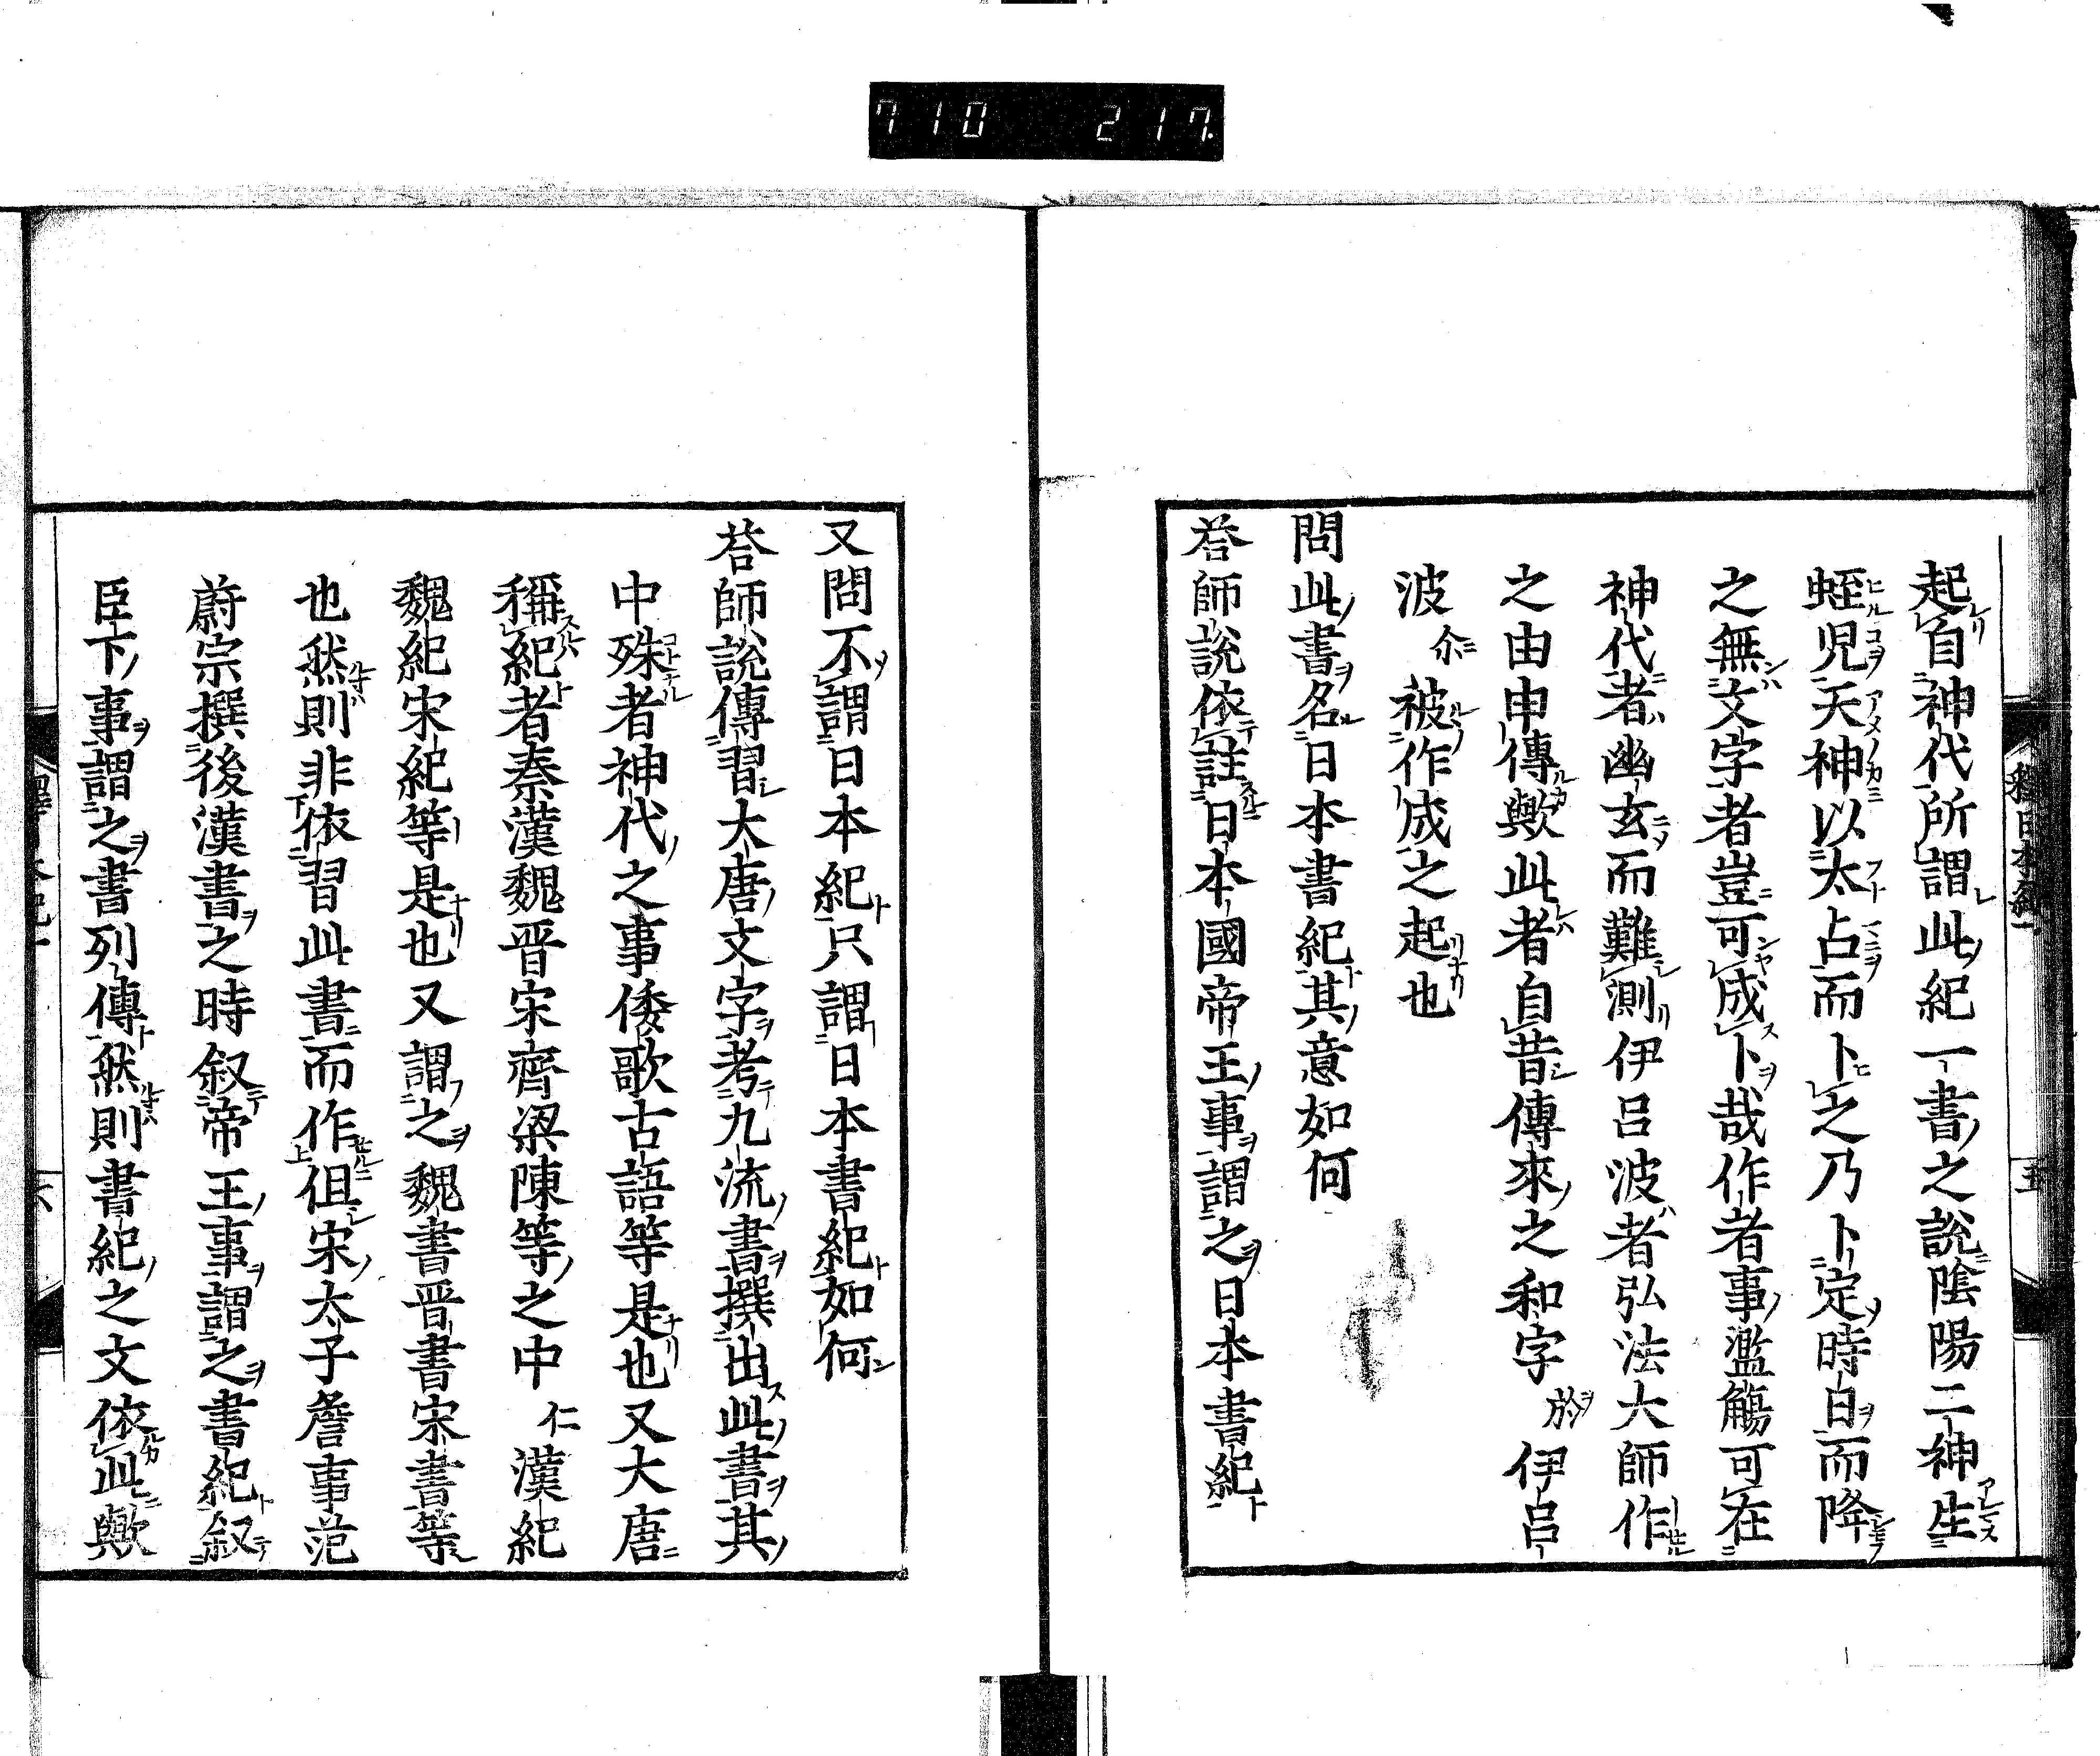 710 217.
起自神代所謂此紀一書之説陰陽二神生
蛭児天神以太占而卜之乃卜定時日而降
之無文字者豈可成卜哉作者事濫觴可在
神代者幽玄而難測伊呂波者弘法大師作
之由申傳歟此者自昔傳來之和字於伊呂
波尒被作成之起也
問此書名日本書紀其意如何
荅師説依註日本國帝王事謂之日本書紀
五
又問不謂日本紀只謂日本書紀如何
荅師説傳習大唐文字考九流書撰出此書其
中殊者神代之事倭歌古語等是也又大唐
稱紀者秦漢魏晋宋齊梁陳等之中仁漢紀
魏紀宋紀等是也又謂之魏書晋書宋書等
也然則非依習此書而作但宋太子詹事范
蔚宗撰後漢書之時叙帝王事謂之書紀叙
臣下事謂之書列傳然則書紀之文依此歟
六